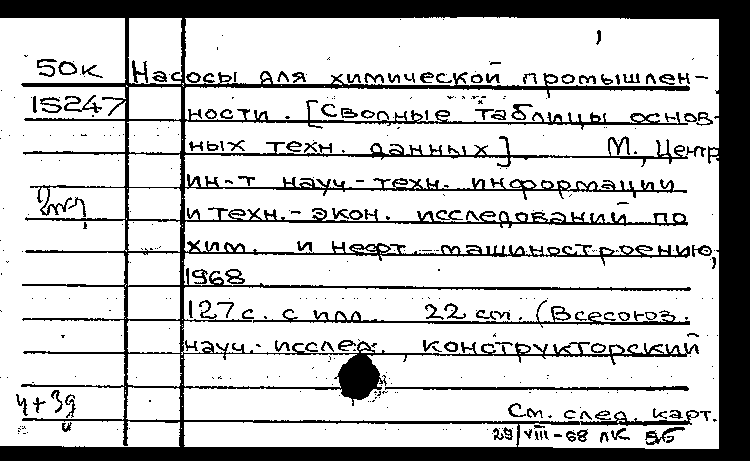 50к Насосы для химической промышлен-
15247 ности. [Сводные таблицы основ-
ных техн. данных] М., Центр
ин-т науч.-техн. информации
и техн.-экон. исследований по
хим. и нефт. машиностроению,
1968
127 с. с илл. 22 см. (Всесоюз.
науч.-исслед., конструкторский
ч+3д См. след. карт.
29/VIII-68 ЛК 56